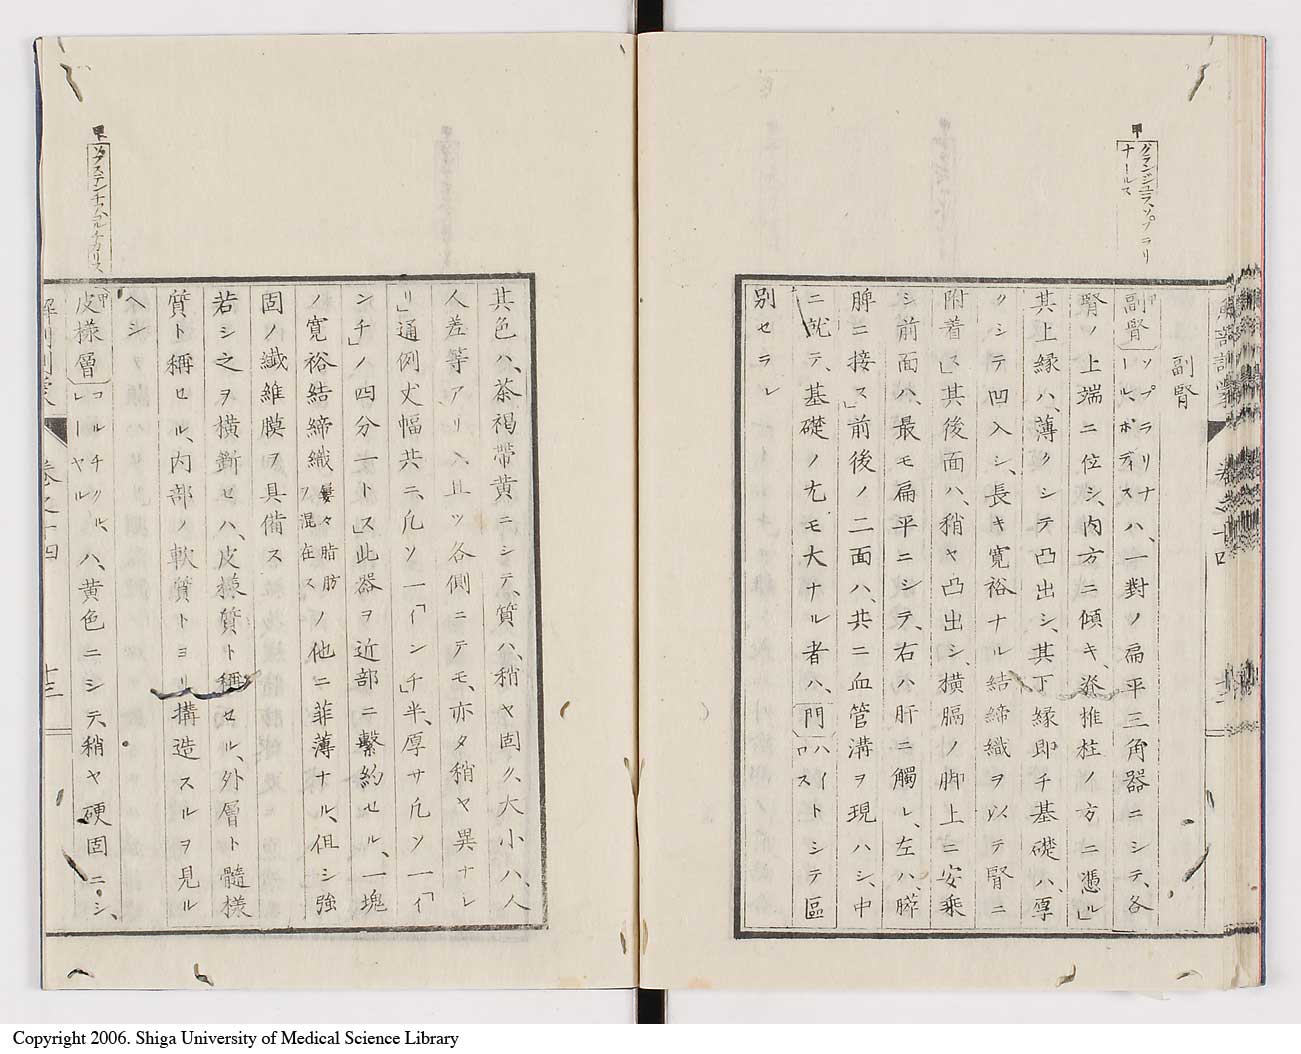 甲
グランジュラスソプラリ
ナールス
副腎
副腎〔ソプラリナ、
ール、ボディス〕ハ、一對ノ扁平三角器ニシテ、各
腎ノ上端ニ位シ、内方ニ傾キ、脊椎柱ノ方ニ憑ル」
其上縁ハ、薄クシテ凸出シ、其下縁即チ基礎ハ、厚
クシテ凹入シ、長キ寛裕ナル結締織ヲ以テ腎ニ
附着ス」其後面ハ、稍ヤ凸出シ、横膈ノ脚上ニ安乗
シ前面ハ、最モ扁平ニシテ、右ハ肝ニ觸レ、左ハ、膵
脾ニ接ス」前後ノ二面ハ、共ニ血管溝ヲ現ハシ、中
ニ就テ、基礎ノ尤モ大ナル者ハ、門〔ハイ
ロス〕トシテ區
別セラレ
其色ハ、茶褐帯黄ニシテ、質ハ、稍ヤ固ク、大小ハ、人
人差等アリ、且ツ各側ニテモ、亦タ稍ヤ異ナレ
リ」通例丈幅共ニ、凡ソ一「インチ」半、厚サ凡ソ一「イ
ンチ」ノ四分一トス」此器ヲ近部ニ繋約セル、一塊
ノ寛裕結締織屡々脂肪
ヲ混在スノ他ニ菲薄ナル、但シ強
固ノ纖維膜ヲ具備ス
若シ之ヲ横斷セハ、皮様質ト稱セル、外層ト髓様
質ト稱セル、内部ノ軟質トヨリ構造スルヲ見ル
ヘシ
甲
皮様層〔コルチクル、
レーヤル〕ハ、黄色ニシテ、稍ヤ硬固ニシ、
甲
卷之十四
十三